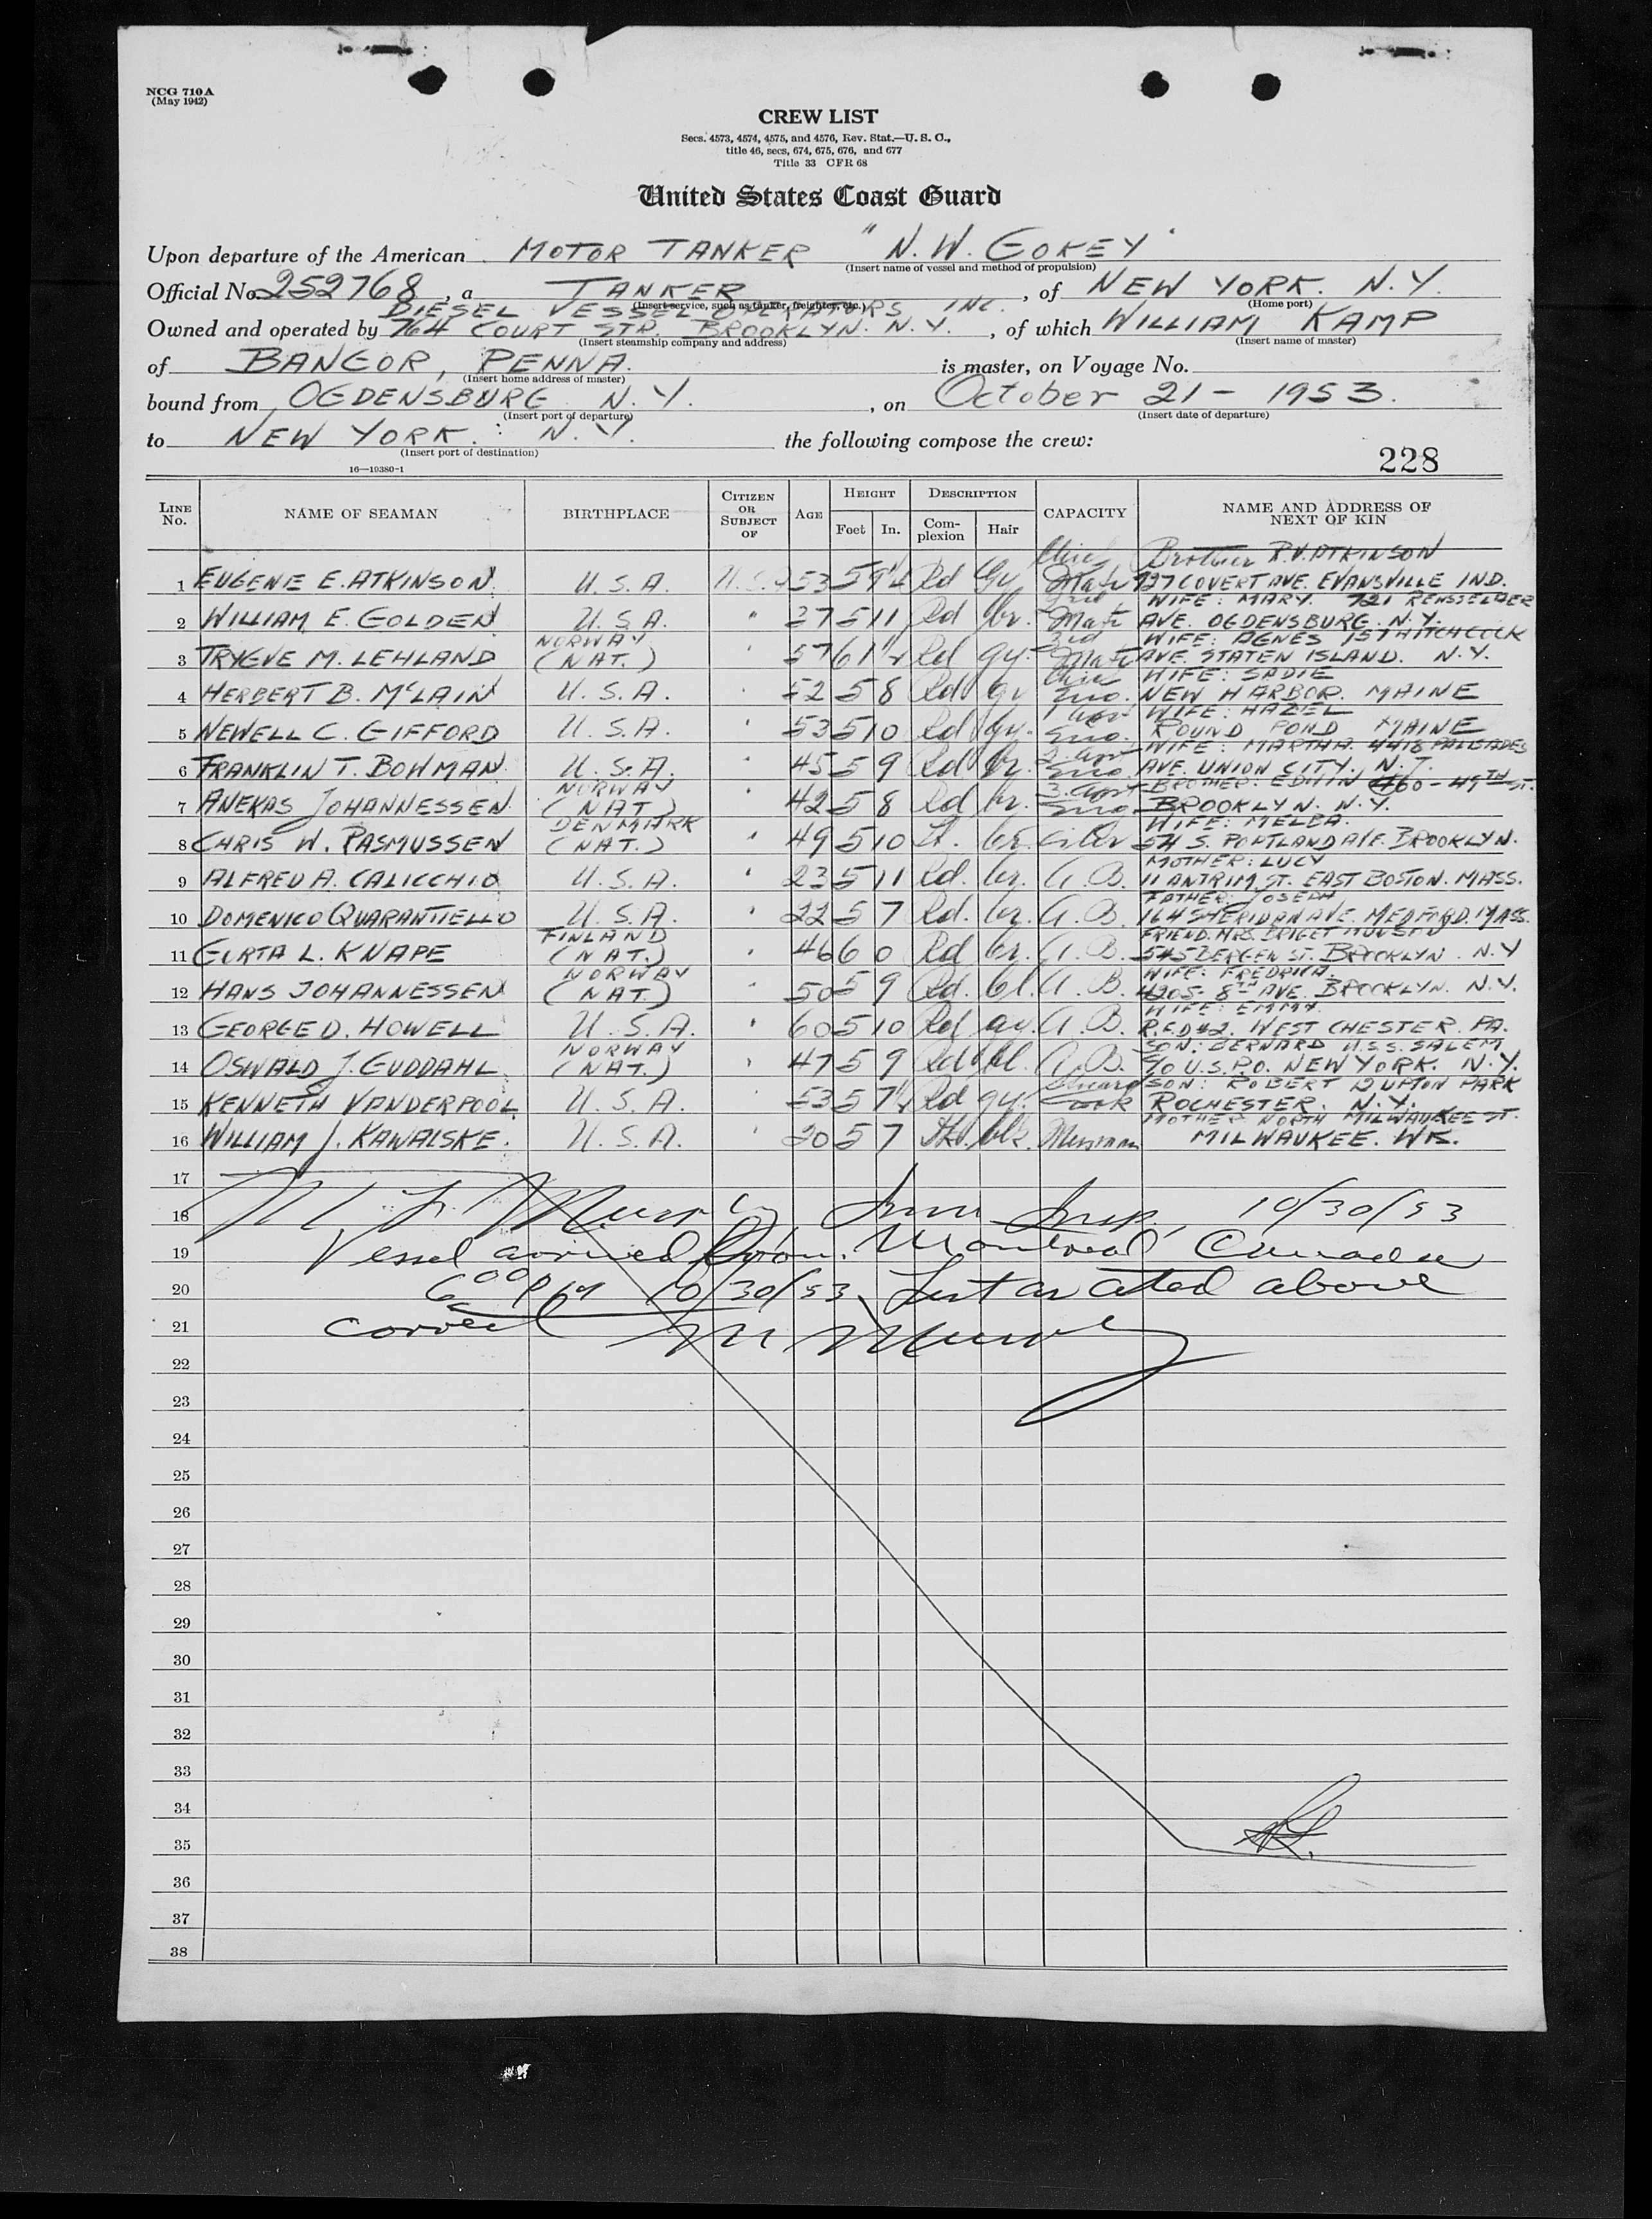 NCG 710A
(May 1942)
CREW LIST
Secs. 4573, 4574, 4575, and 4576, Rev. Stat.—U. S. C.,
title 46, secs, 674, 675, 676, and 677
Title 33 CFR 68
United States Coast Guard
Upon departure of the American MOTOR TANKER "N. W. GOKEY"
(Insert name of vessel and method of propulsion)
Official No. 252768, a TANKER, of NEW YORK. N.Y.
(Insert service, such as tanker, freighter, etc.) (Home port)
DIESEL VESSEL OPERATORS INC.
Owned and operated by 764 COURT STR. BROOKLYN. N.Y., of which WILLIAM KAMP
(Insert steamship company and address) (Insert name of master)
of BANGOR, PENNA. is master, on Voyage No.
(Insert home address of master)
bound from OGDENSBURG N.Y., on October 21 - 1953.
(Insert port of departure) (Insert date of departure)
to NEW YORK. N.Y. the following compose the crew:
(Insert port of destination)
16—19380-1
228
LINE No. NAME OF SEAMAN BIRTHPLACE CITIZEN OR SUBJECT OF AGE HEIGHT Feet In. DESCRIPTION Complexion Hair CAPACITY NAME AND ADDRESS OF NEXT OF KIN
Chief Brother R.V. ATKINSON
1 EUGENE E. ATKINSON. U.S.A. U.S.A 53 5 9 1/2 Rd Gy Mate 727 COVERT AVE. EVANSVILLE IND.
2nd WIFE: MARY. 721 RENSSELAER
2 WILLIAM E. GOLDEN U.S.A. " 37 5 11 Rd br. Mate AVE. OGDENSBURG. N.Y.
NORWAY 3rd WIFE: AGNES 157 HITCHCOCK
3 TRYGVE M. LEHLAND (NAT.) " 57 6 1 1/2 Rd gy. Mate AVE. STATEN ISLAND. N.Y.
Chief WIFE: SADIE
4 HERBERT B. McLAIN U.S.A. " 52 5 8 Rd gr Eng. NEW HARBOR. MAINE
1 asst WIFE: HAZEL
5 NEWELL C. GIFFORD U.S.A. 53 5 10 Rd gy. Eng. ROUND POND MAINE
2 asst WIFE: MARTHA. 4418 PALISADES
6 FRANKLIN T. BOWMAN. U.S.A. " 45 5 9 Rd br. Eng. AVE. UNION CITY. N.J.
NORWAY 3. asst BROTHER: EDWIN 460 - 49TH ST.
7 ANEKAS JOHANNESSEN. (NAT.) " 42 5 8 Rd br. Eng BROOKLYN. N.Y.
DENMARK WIFE: MELBA.
8 CHRIS W. RASMUSSEN (NAT.) " 49 5 10 Lt. br. Oiler 54 S. PORTLAND AVE. BROOKLYN.
MOTHER: LUCY
9 ALFRED A. CALICCHIO U.S.A. " 23 5 11 Rd. br. A.B. 11 ANTRIM. ST. EAST BOSTON. MASS.
FATHER: JOSEPH
10 DOMENICO QUARANTIELLO U.S.A. " 22 5 7 Rd. br. A.B. 164 SHERIDAN AVE. MEDFORD. MASS.
FINLAND FRIEND. MRS. BRIGET
11 L. KNAPE (NAT.) " 46 6 0 Rd br. A.B. 545 BERGEN ST. BROOKLYN. N.Y
NORWAY WIFE: FREDRICA.
12 HANS JOHANNESSEN (NAT.) " 50 5 9 Rd. bl. A.B. 4205- 8TH AVE. BROOKLYN. N.Y.
WIFE: EMMA
13 GEORGE D. HOWELL U.S.A. " 60 5 10 Rd gy. A.B. R.F.D #2. WEST CHESTER. PA.
NORWAY SON: BERNARD U.S.S. SALEM
14 OSWALD J. GUDDAHL (NAT.) " 47 5 9 Rd bl. A.B. C/O U.S.P.O. NEW YORK. N.Y.
Steward SON: ROBERT UPTON PARK
15 KENNETH VANDERPOOL U.S.A. " 53 5 7 1/2 Rd gy. Cook ROCHESTER. N.Y.
MOTHER NORTH MILWAUKEE ST.
16 WILLIAM J. KAWALSKE. U.S.A. " 20 5 7 Dk. blk. Messman MILWAUKEE. WIS.
17
18 M. J. Murphy Imm. Insp. 10/30/53
19 Vessel arrived from Montreal Canada
20 6 00 PM 10/30/53. List as above
21 correct M Murphy
22
23
24
25
26
27
28
29
30
31
32
33
34
35
36
37
38